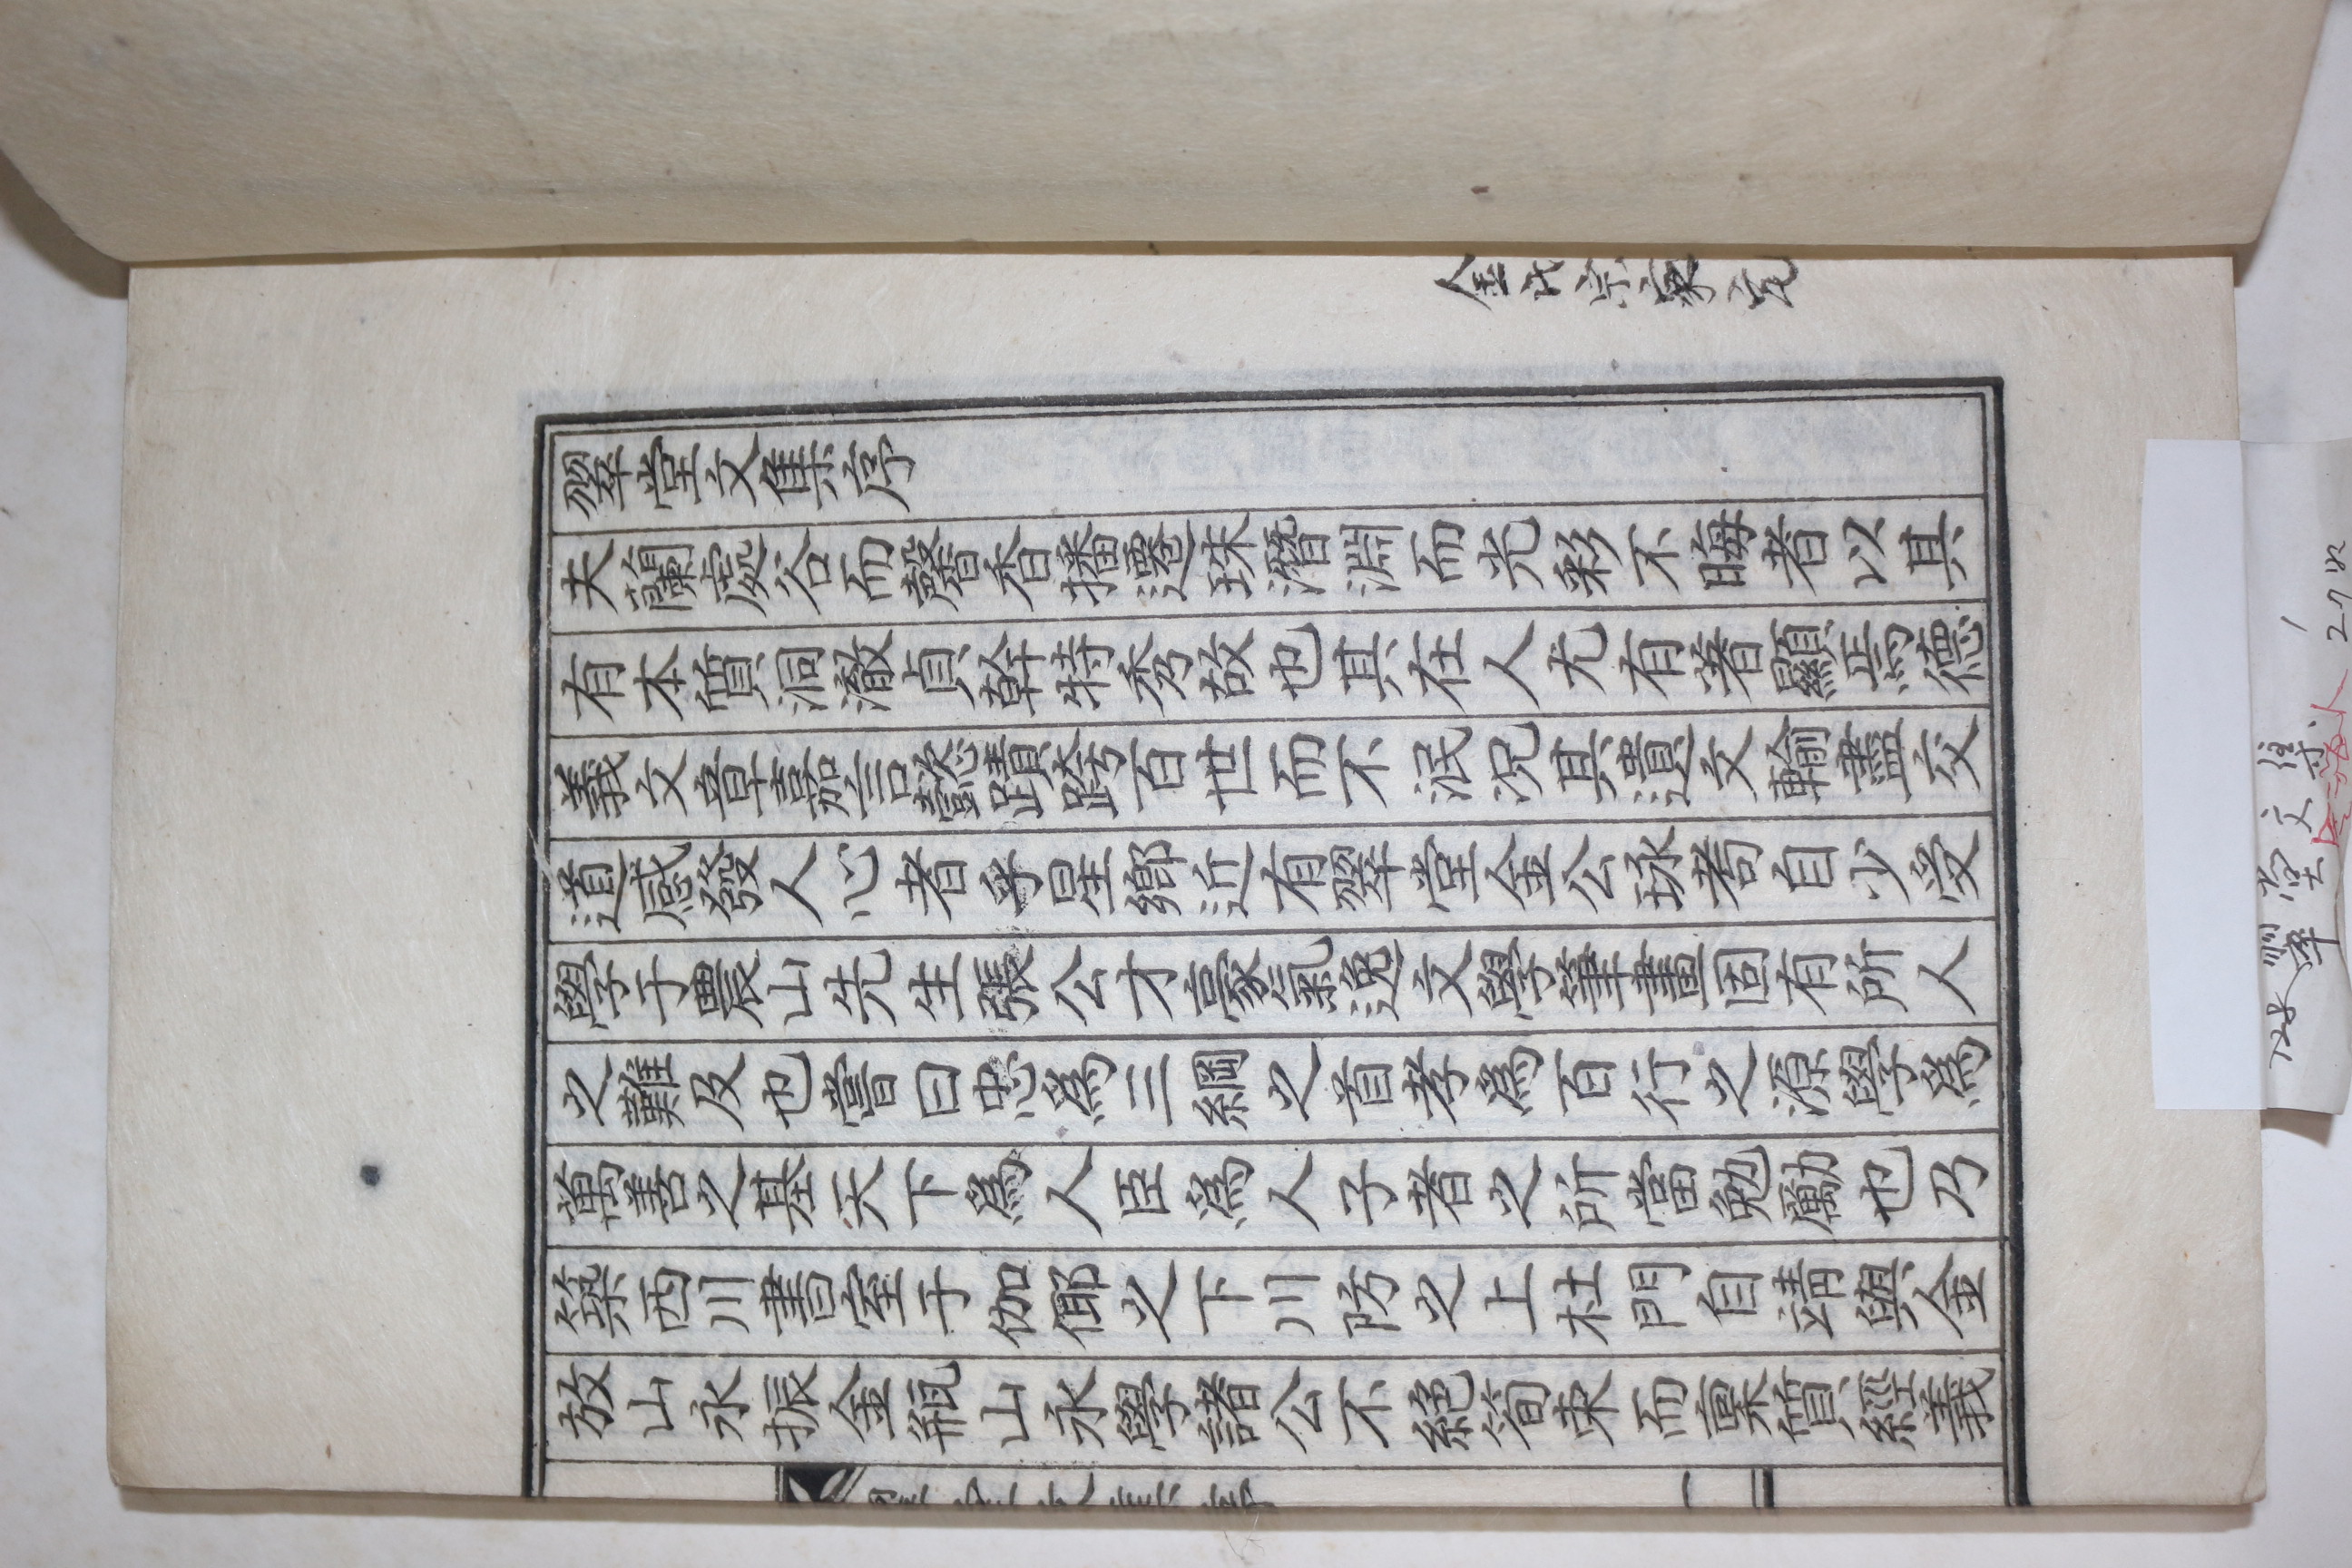 翠堂文集序
夫蘭處谷而馨香播遷珠潛淵而光彩不晦者以其
有本質洞澈貞幹特秀故也其在人尤有著顯焉德
義文章嘉言懿蹟跨百世而不泯况其遺文輸盡交
道感發人心者乎星鄉近有翠堂金公琭耈自少受
學于農山先生張公才豪氣逸文學筆畫固有所人
之難及也嘗曰忠爲三綱之首孝爲百行之源學爲
萬善之基天下爲人臣爲人子者之所當勉勵也乃
築西川書室于伽倻之下川防之上杜門自靖與金
放山永振金甁山永學諸公不絶筍束而稟質經義
金氏宗家宅
翠堂文集